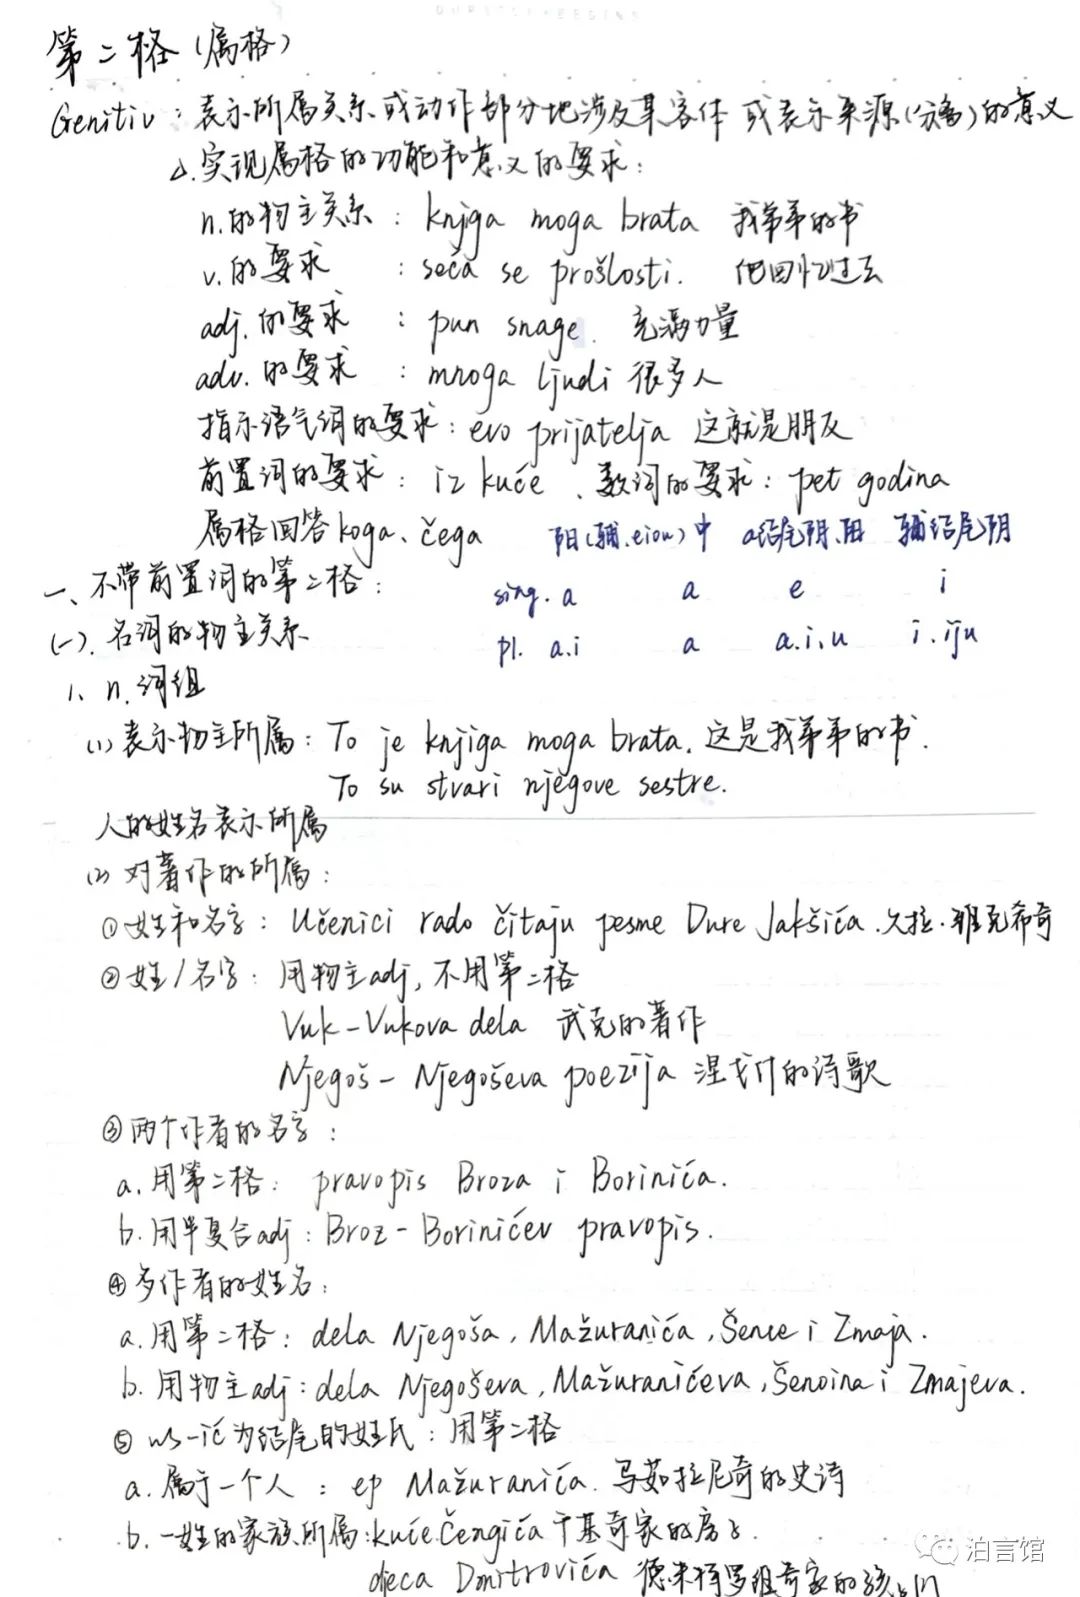 第二格（属格）
Genitiv：表示所属关系或动作部分地涉及某客体 或表示来源（分离）的意义
△.实现属格的功能和意义的要求：
n.的物主关系：knjga moga brata 我弟弟的书
v.的要求：seća se prošlosti. 他回忆过去
adj.的要求：pun snage. 充满力量
adv.的要求：mnoga ljudi 很多人
指示语气词的要求：evo prijatelja 这就是朋友
前置词的要求：iz kuće、数词的要求：pet godina
属格回答koga、čega 阳(辅.eiou)中 a结尾阴.阳 辅结尾阴
一、不带前置词的第二格： sing. a a e i
(一). 名词的物主关系 pl. a.i a a.i.u i.iju
1、n.词组
(1)表示物主所属：To je knjiga moga brata. 这是我弟弟的书.
To su stvari njegove sestre.
人的姓名表示所属
(2)对著作的所属：
①姓和名字：Učenici rado čitaju pesme Đure Jakšića.久拉·雅克希奇
②姓/名字：用物主adj, 不用第二格
Vuk-Vukova dela 武克的著作
Njegoš- Njegoševa poezija 涅戈什的诗歌
③两个作者的名字：
a.用第二格：pravopis Broza i Borinića.
b.用半复合adj：Broz-Borinićev pravopis.
④多作者的姓名：
a.用第二格：dela Njegoša, Mažuranića, Šence i Zmaja.
b.用物主adj：dela Njegoševa, Mažuranićeva, Šenoina i Zmajeva.
⑤ 以-ić为结尾的姓氏：用第二格
a.属于一个人：ep Mažuranića. 马茹拉尼奇的史诗
b.一姓的家族所属：kuće Čengića 千基奇家的房子.
djeca Dmitrovića 德米特罗维奇家的孩子们
泊言馆